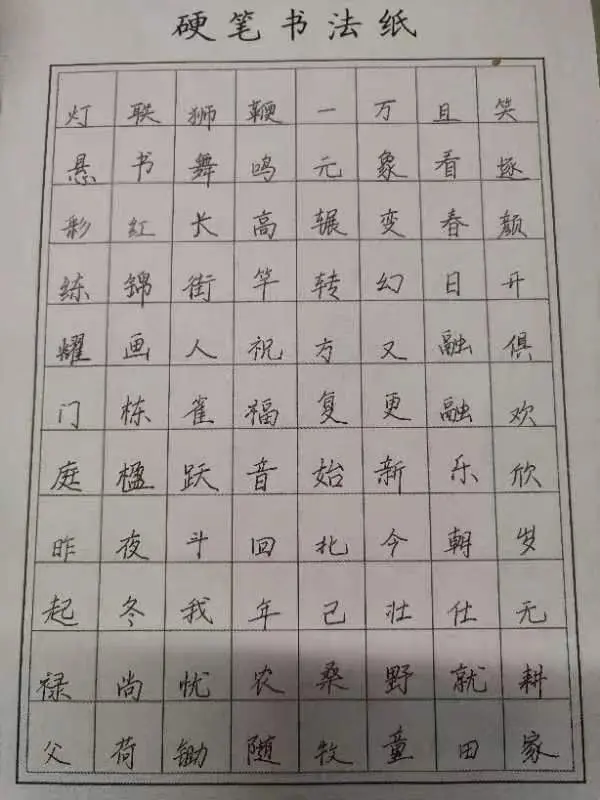 硬笔书法纸
灯悬彩练耀门庭
联书红锦画栋楹
狮舞长街人雀跃
鞭鸣高竿祝福音
一元辗转方复始
万象变幻又更新
且看春日融融乐
笑逐颜开俱欢欣
昨夜斗回北今朝岁
起冬我年己壮仕无
禄尚忧农桑野就耕
父荷锄随牧童田家